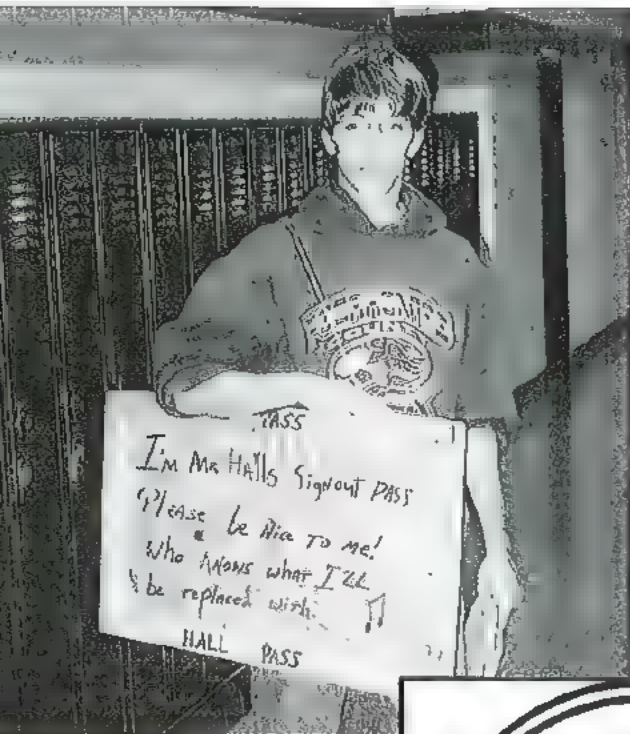 PASS
I'm MR HAlls Signout PASS
Please be Nice To me!
Who knows what I'LL
be replaced with.
HALL PASS